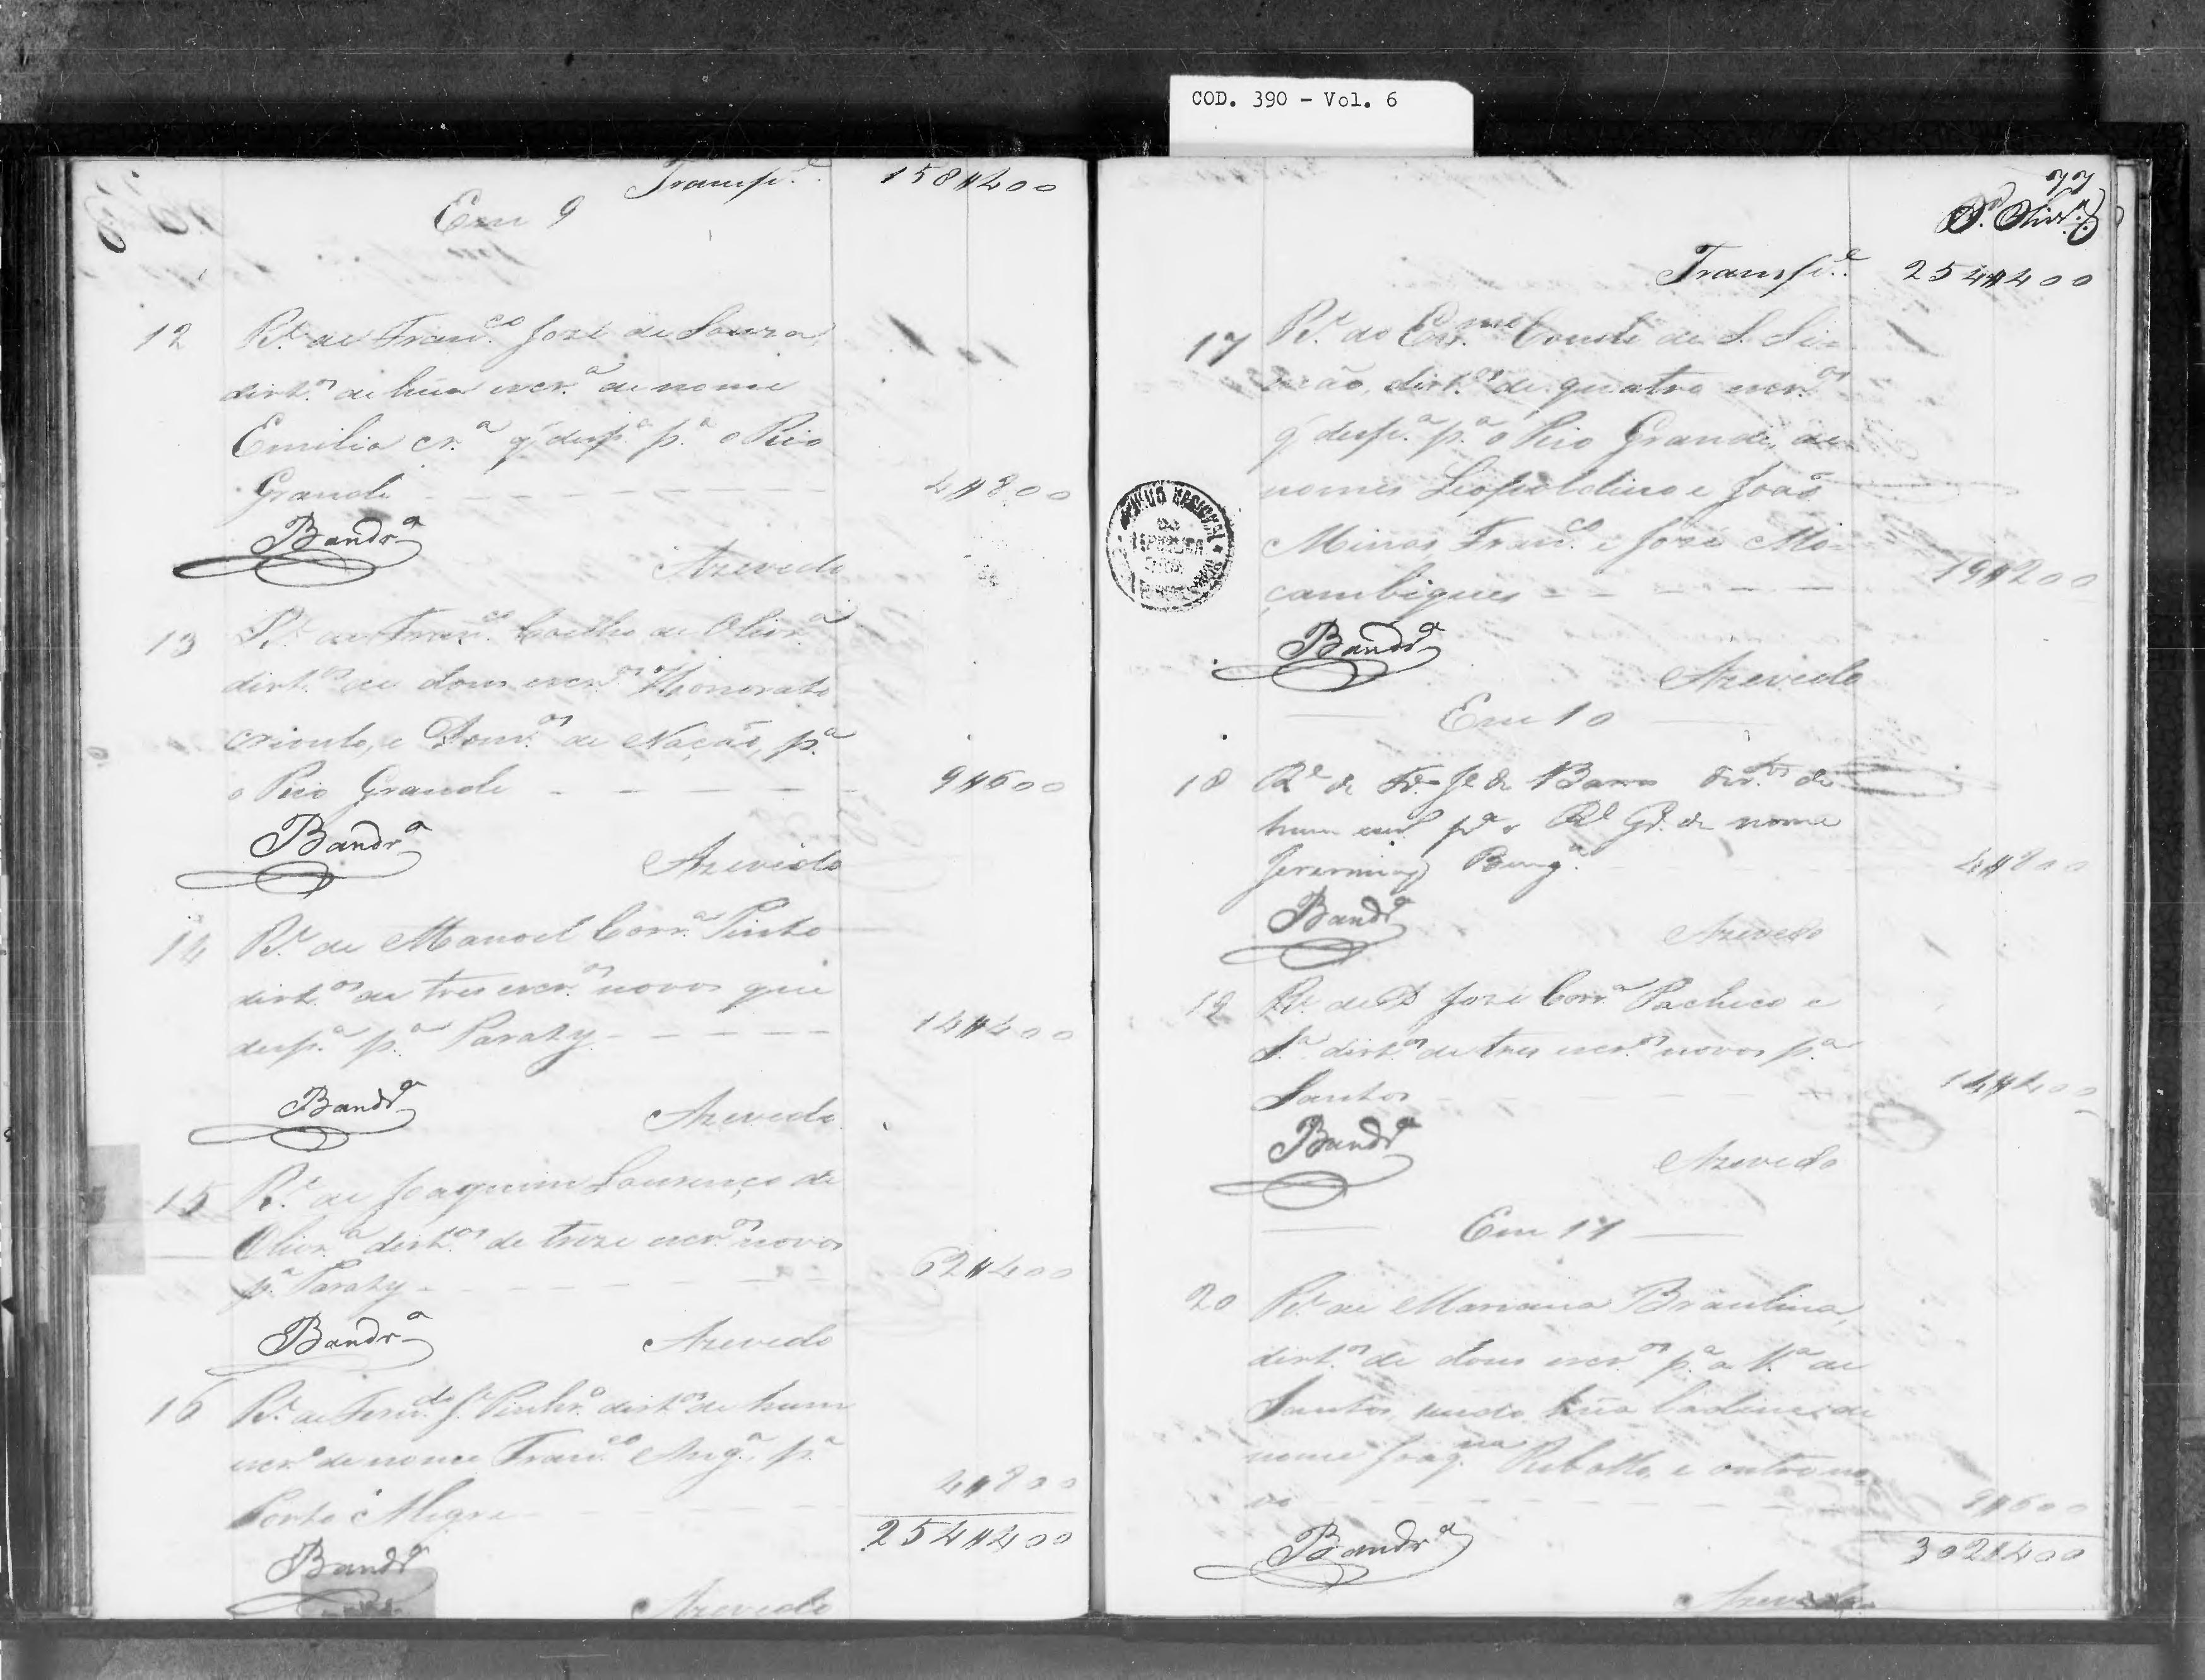 COD. 390 - Vol. 6
Transp.e 158$400
Em 9
12 R.e de Fran.co José de Souza,
dirt.os de hũa escr.a de nome
Emilia cr.a q' desp.a p.a o Rio
Grande 4$800
Bandr.a
Azevedo
13 R.e de Fran.co Coelho de Olivr.a
dirt.os de dous escr.os Honorato
crioulo, e Dom.os de Nação, p.a
o Rio Grande 9$600
Bandr.a
Azevedo
14 R.e de Manoel Corr.a Pinto
dirt.os de tres escr.os novos que
desp.a p.a Paraty 14$400
Bandr.a
Azevedo
15 R.e de Joaquim Lourenço de
Olivr.a dirt.os de treze escr.os novos
p.a Paraty 62$400
Bandr.a
Azevedo
16 R.e de Fern.do J.e Pinhr.o dirt.os de hum
escr.o de nome Fran.co Ang.a p.a
Porto Alegre 4$800
254$400
Bandr.a
Azevedo
77
Olivr.a
Transp.e 254$400
17 R.e do Ex.mo Conde de S. Si=
mão, dirt.os de quatro escr.os
q' desp.a p.a o Rio Grande, de
nomes Leopoldino e João
Minas, Fran.co e José Mo=
çambiques 19$200
Bandr.a
Azevedo
Em 10
18 R.e de J.e de Barros dir.tos de
hum escr.o p.a o R.o G.de de nome
Jeronimo Beng.a 4$800
Bandr.a
Azevedo
19 R.e de D José Corr.a Pacheco e
S.a dirt.os de tres escr.os novos p.a
Santos 14$400
Bandr.a
Azevedo
Em 11
20 R.e de Mariana Braulina,
dirt.os de dous escr.os p.a a V.a de
Santos, sendo hũa ladina de
nome Joaq.na Rebollo, e outro no=
vo 9$600
302$400
Bandr.a
Azevedo